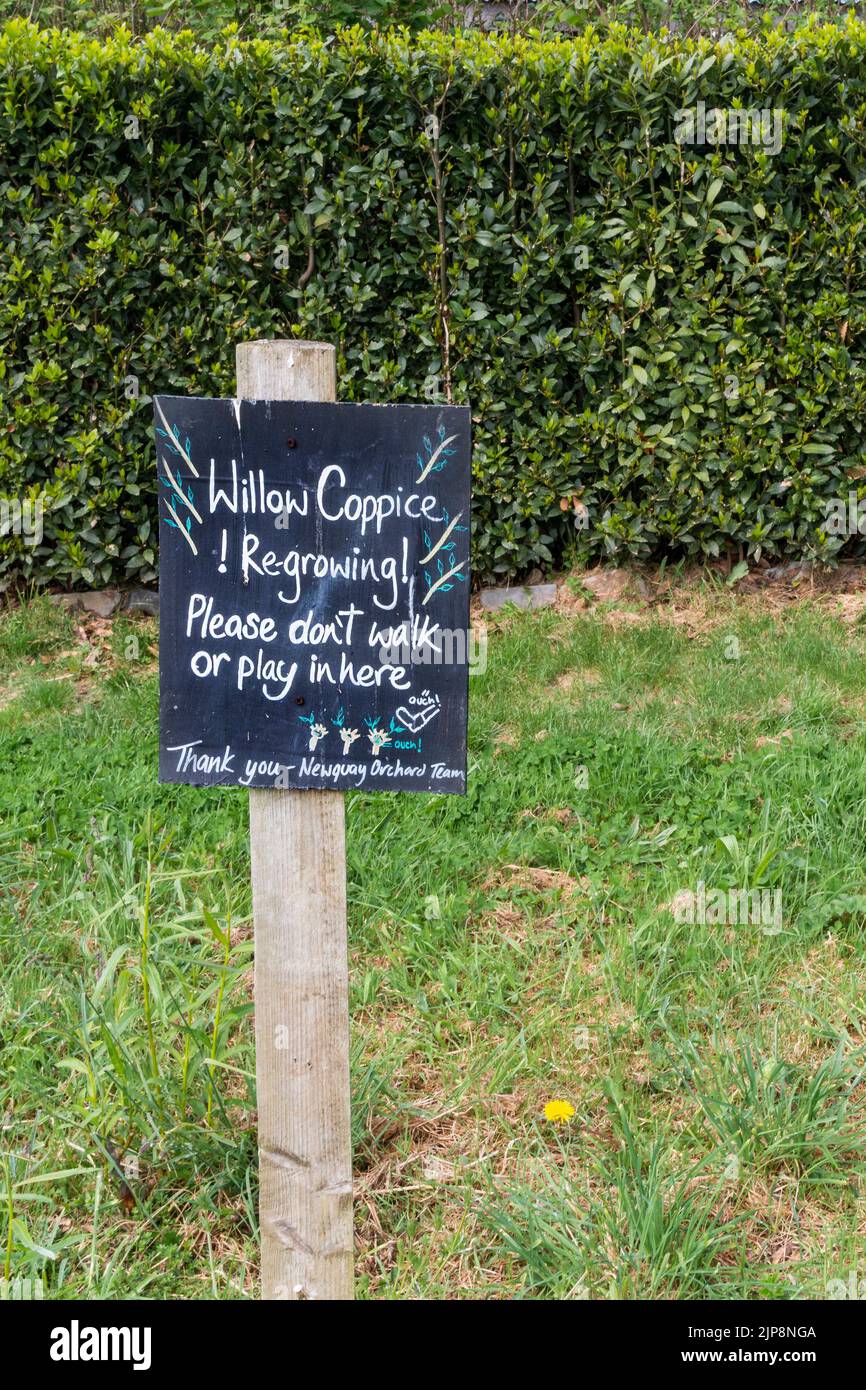 Willow Coppice
! Re-growing!
Please don't walk
or play in here
ouch!
ouch!
Thank you - Newquay Orchard Team
alamy
Image ID: 2JP8NGA
www.alamy.com